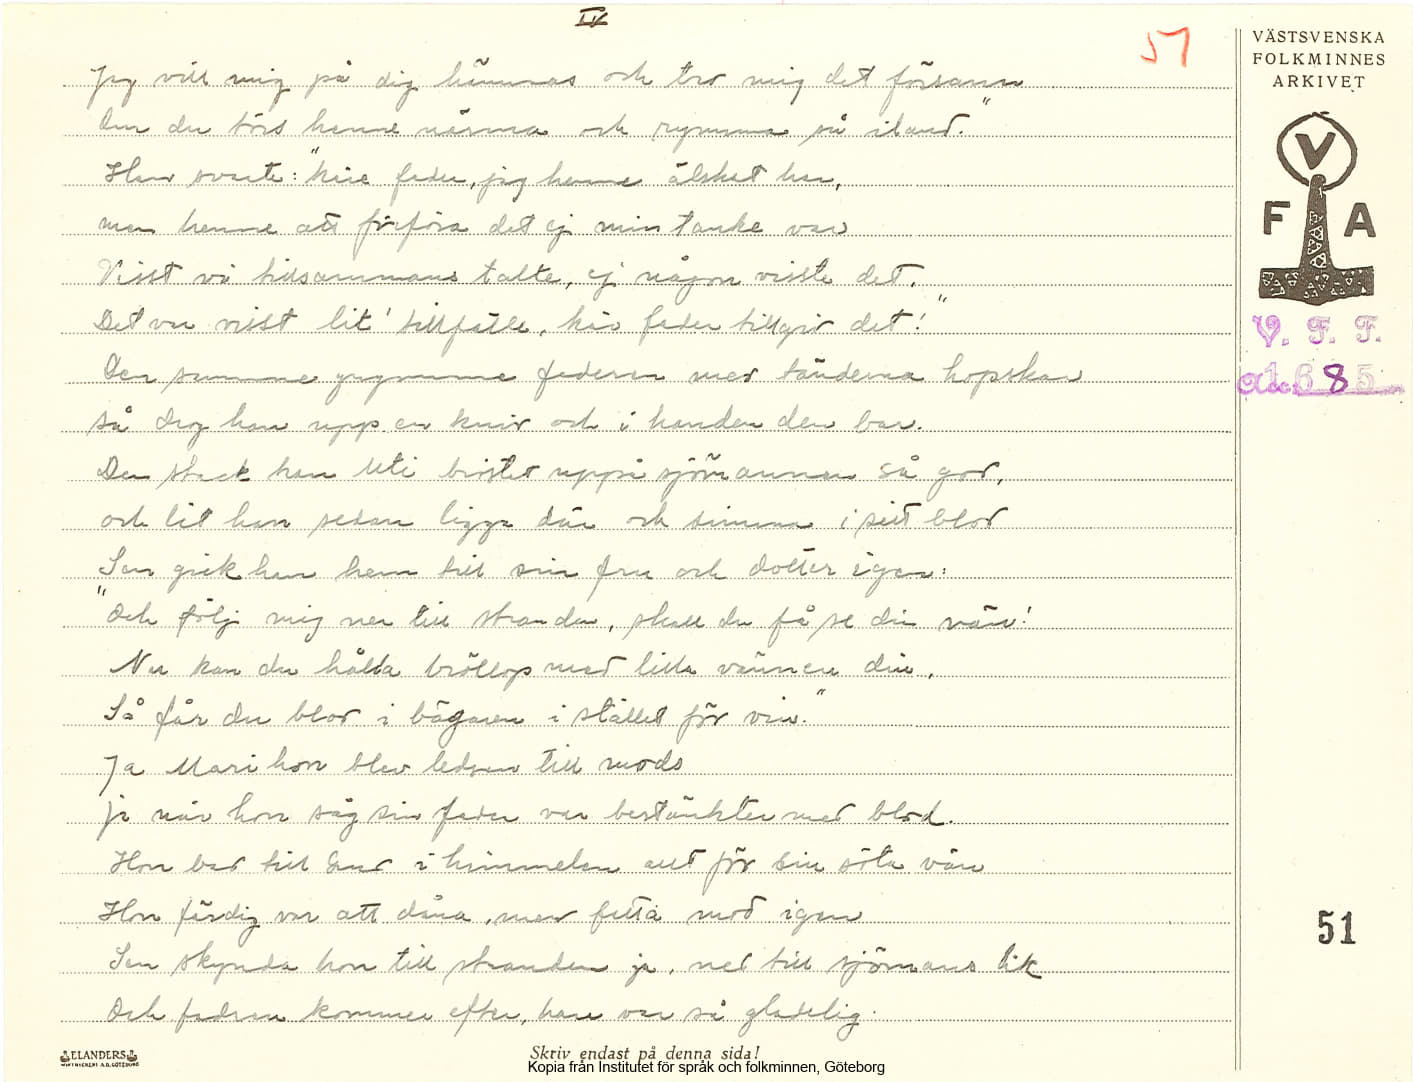 IV
51
VÄSTSVENSKA
FOLKMINNES
ARKIVET
V
F A
V. F. F.
Acc. 1685
Jag vill mig på dig hämnas och tro mig det försann
Om du törs henne närma och rymma så iland."
Han svarte: "käre fader, jag henne älsket har,
men henne att förföra det ej min tanke var
Visst vi tillsammans talte, ej någon visste det.
Det var visst lit' tillfälle, kär fader tillgiv det!"
Den samme grymme faderen med tänderna hopskar
så drog han upp en kniv och i handen den bar.
Den stack han uti bröstet uppå sjömannen så god,
och lät han sedan ligga där och simma i sitt blod
Sen gick han hem till sin fru och dotter igen:
"Och följ mig ner till stranden, skall du få se din vän!
Nu kan du hålla bröllop med lilla vännen din,
Så får du blod i bägaren i stället för vin."
Ja Mari hon blev ledsen till mods
ja när hon såg sin fader var bestänkter med blod.
Hon bad till Gud i himmelen allt för sin söta vän
Hon färdig var att dåna, men fatta mod igen
Sen skynda hon till stranden ja, ned till sjömans lik
Och fadren kommer efter, han var så gladelig.
51
ELANDERS
BOKTRYCKERI A.B. GÖTEBORG
Skriv endast på denna sida!
Kopia från Institutet för språk och folkminnen, Göteborg